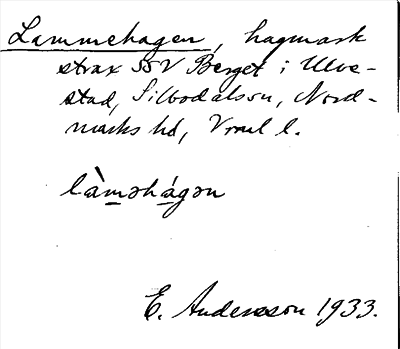 Lammehagen, hagmark
strax SSV Berget i Ulve-
stad, Silbodalssn, Nord-
marks hd, Vrml l.
làm̲əhá̲gən
E. Andersson 1933.